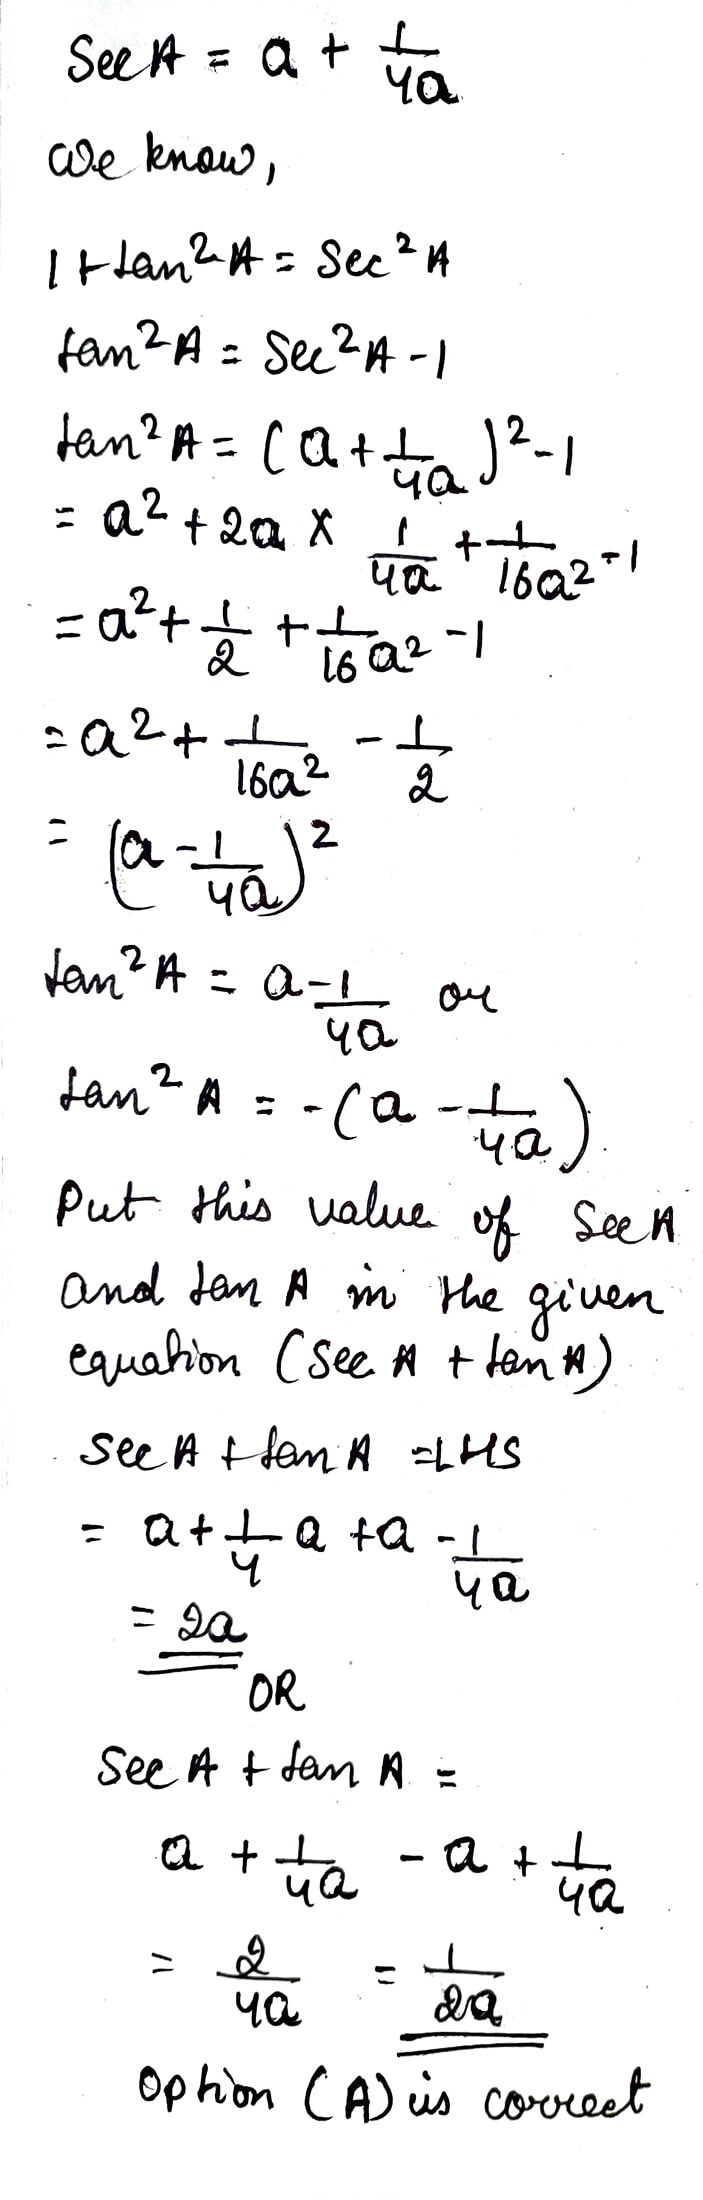 Sec A = a + 1/4a
We know,
1 + tan²A = Sec²A
tan²A = Sec²A - 1
tan²A = (a + 1/4a)² - 1
= a² + 2a × 1/4a + 1/16a² - 1
= a² + 1/2 + 1/16a² - 1
= a² + 1/16a² - 1/2
= (a - 1/4a)²
tan²A = a - 1/4a or
tan²A = -(a - 1/4a)
Put this value of Sec A
and tan A in the given
equation (Sec A + tan A)
Sec A + tan A = LHS
= a + 1/4 a + a - 1/4a
= 2a
OR
Sec A + tan A =
a + 1/4a - a + 1/4a
= 2/4a = 1/2a
Option (A) is correct